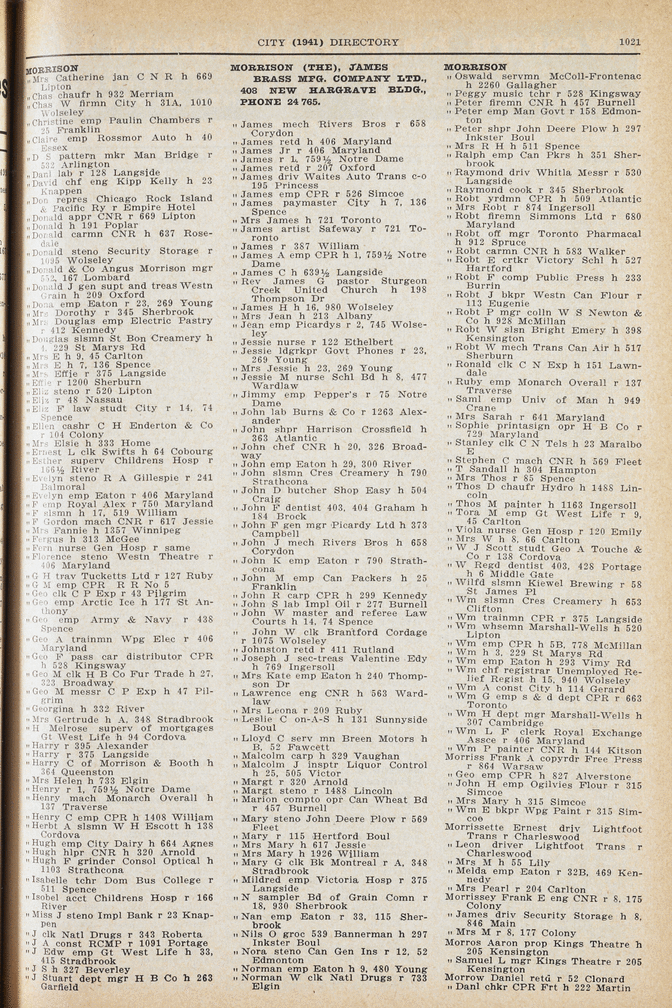 CITY (1941) DIRECTORY
1021
MORRISON
" Mrs Catherine jan C N R h 669
Lipton
" Chas chaufr h 932 Merriam
" Chas W firmn City h 31A, 1010
Wolseley
" Christine emp Paulin Chambers r
25 Franklin
" Claire emp Rossmor Auto h 40
Essex
" D S pattern mkr Man Bridge r
532 Arlington
" Danl lab r 128 Langside
" David chf eng Kipp Kelly h 23
Knappen
" Don repres Chicago Rock Island
& Pacific Ry r Empire Hotel
" Donald appr CNR r 669 Lipton
" Donald h 191 Poplar
" Donald carmn CNR h 637 Rose-
dale
" Donald steno Security Storage r
1095 Wolseley
" Donald & Co Angus Morrison mgr
552, 167 Lombard
" Donald J gen supt and treas Westn
Grain h 209 Oxford
" Dona emp Eaton r 23, 269 Young
" Mrs Dorothy r 345 Sherbrook
" Mrs Douglas emp Electric Pastry
r 412 Kennedy
" Douglas slsmn St Bon Creamery h
4, 229 St Marys Rd
" Mrs E h 9, 45 Carlton
" Mrs E h 7, 136 Spence
" Mrs Effie r 375 Langside
" Effie r 1200 Sherburn
" Eliz steno r 520 Lipton
" Eliz r 48 Nassau
" Eliz F law studt City r 14, 74
Spence
" Ellen cashr C H Enderton & Co
r 104 Colony
" Mrs Elsie h 333 Home
" Ernest L clk Swifts h 64 Cobourg
" Esther superv Childrens Hosp r
166½ River
" Evelyn steno R A Gillespie r 241
Balmoral
" Evelyn emp Eaton r 406 Maryland
" F emp Royal Alex r 750 Maryland
" F slsmn h 17, 519 William
" F Gordon mach CNR r 617 Jessie
" Mrs Fannie h 1357 Winnipeg
" Fergus h 313 McGee
" Fern nurse Gen Hosp r same
" Florence steno Westn Theatre r
406 Maryland
" G H trav Tucketts Ltd r 127 Ruby
" G M emp CPR R R No 5
" Geo clk C P Exp r 43 Pilgrim
" Geo emp Arctic Ice h 177 St An-
thony
" Geo emp Army & Navy r 438
Spence
" Geo A trainmn Wpg Elec r 406
Maryland
" Geo F pass car distributor CPR
h 528 Kingsway
" Geo M clk H B Co Fur Trade h 27,
323 Broadway
" Geo M messr C P Exp h 47 Pil-
grim
" Georgina h 332 River
" Mrs Gertrude h A, 348 Stradbrook
" H Melrose superv of mortgages
Gt West Life h 94 Cordova
" Harry r 395 Alexander
" Harry r 375 Langside
" Harry C of Morrison & Booth h
364 Queenston
" Mrs Helen h 733 Elgin
" Henry r 1, 759½ Notre Dame
" Henry mach Monarch Overall h
137 Traverse
" Henry C emp CPR h 1408 William
" Herbt A slsmn W H Escott h 138
Cordova
" Hugh emp City Dairy h 664 Agnes
" Hugh hlpr CNR h 320 Arnold
" Hugh F grinder Consol Optical h
1103 Strathcona
" Isabelle tchr Dom Bus College r
511 Spence
" Isobel acct Childrens Hosp r 166
River
" Miss J steno Impl Bank r 23 Knap-
pen
" J clk Natl Drugs r 343 Roberta
" J A const RCMP r 1091 Portage
" J Edw emp Gt West Life h 33,
415 Stradbrook
" J S h 327 Beverley
" J Stuart dept mgr H B Co h 263
Garfield
MORRISON (THE), JAMES
BRASS MFG. COMPANY LTD.,
408 NEW HARGRAVE BLDG.,
PHONE 24 765.
" James mech Rivers Bros r 658
Corydon
" James retd h 406 Maryland
" James Jr r 406 Maryland
" James r 1, 759½ Notre Dame
" James retd r 207 Oxford
" James driv Waites Auto Trans c-o
195 Princess
" James emp CPR r 526 Simcoe
" James paymaster City h 7, 136
Spence
" Mrs James h 721 Toronto
" James artist Safeway r 721 To-
ronto
" James r 387 William
" James A emp CPR h 1, 759½ Notre
Dame
" James C h 639½ Langside
" Rev James G pastor Sturgeon
Creek United Church h 198
Thompson Dr
" James H h 16, 980 Wolseley
" Mrs Jean h 213 Albany
" Jean emp Picardys r 2, 745 Wolse-
ley
" Jessie nurse r 122 Ethelbert
" Jessie ldgrkpr Govt Phones r 23,
269 Young
" Mrs Jessie h 23, 269 Young
" Jessie M nurse Schl Bd h 8, 477
Wardlaw
" Jimmy emp Pepper's r 75 Notre
Dame
" John lab Burns & Co r 1263 Alex-
ander
" John shpr Harrison Crossfield h
363 Atlantic
" John chef CNR h 20, 326 Broad-
way
" John emp Eaton h 29, 300 River
" John slsmn Cres Creamery h 790
Strathcona
" John D butcher Shop Easy h 504
Craig
" John F dentist 403, 404 Graham h
184 Brock
" John F gen mgr Picardy Ltd h 373
Campbell
" John J mech Rivers Bros h 658
Corydon
" John K emp Eaton r 790 Strath-
cona
" John M emp Can Packers h 25
Franklin
" John R carp CPR h 299 Kennedy
" John S lab Impl Oil r 277 Burnell
" John W master and referee Law
Courts h 14, 74 Spence
" John W clk Brantford Cordage
r 1075 Wolseley
" Johnston retd r 411 Rutland
" Joseph J sec-treas Valentine Edy
h 769 Ingersoll
" Mrs Kate emp Eaton h 240 Thomp-
son Dr
" Lawrence eng CNR h 563 Ward-
law
" Mrs Leona r 209 Ruby
" Leslie C on-A-S h 131 Sunnyside
Boul
" Lloyd C serv mn Breen Motors h
B, 52 Fawcett
" Malcolm carp h 329 Vaughan
" Malcolm J insptr Liquor Control
h 25, 505 Victor
" Margt r 320 Arnold
" Margt steno r 1488 Lincoln
" Marion compto opr Can Wheat Bd
r 457 Burnell
" Mary steno John Deere Plow r 569
Fleet
" Mary r 115 Hertford Boul
" Mrs Mary h 617 Jessie
" Mrs Mary h 1926 William
" Mary G clk Bk Montreal r A, 348
Stradbrook
" Mildred emp Victoria Hosp r 375
Langside
" N sampler Bd of Grain Comn r
18, 930 Sherbrook
" Nan emp Eaton r 33, 115 Sher-
brook
" Nils O groc 539 Bannerman h 297
Inkster Boul
" Nora steno Can Gen Ins r 12, 52
Edmonton
" Norman emp Eaton h 9, 480 Young
" Norman W clk Natl Drugs r 733
Elgin
MORRISON
" Oswald servmn McColl-Frontenac
h 2260 Gallagher
" Peggy music tchr r 528 Kingsway
" Peter firemn CNR h 457 Burnell
" Peter emp Man Govt r 158 Edmon-
ton
" Peter shpr John Deere Plow h 297
Inkster Boul
" Mrs R H h 511 Spence
" Ralph emp Can Pkrs h 351 Sher-
brook
" Raymond driv Whitla Messr r 530
Langside
" Raymond cook r 345 Sherbrook
" Robt yrdmn CPR h 509 Atlantic
" Mrs Robt r 874 Ingersoll
" Robt firemn Simmons Ltd r 680
Maryland
" Robt off mgr Toronto Pharmacal
h 912 Spruce
" Robt carmn CNR h 583 Walker
" Robt E crtkr Victory Schl h 527
Hartford
" Robt F comp Public Press h 233
Burrin
" Robt J bkpr Westn Can Flour r
113 Eugenie
" Robt P mgr colln W S Newton &
Co h 928 McMillan
" Robt W slsn Bright Emery h 398
Kensington
" Robt W mech Trans Can Air h 517
Sherburn
" Ronald clk C N Exp h 151 Lawn-
dale
" Ruby emp Monarch Overall r 137
Traverse
" Saml emp Univ of Man h 949
Crane
" Mrs Sarah r 641 Maryland
" Sophie printasign opr H B Co r
729 Maryland
" Stanley clk C N Tels h 23 Maralbo
E
" Stephen C mach CNR h 569 Fleet
" T Sandall h 304 Hampton
" Mrs Thos r 85 Spence
" Thos D chaufr Hydro h 1488 Lin-
coln
" Thos M painter h 1163 Ingersoll
" Tora M emp Gt West Life r 9,
45 Carlton
" Viola nurse Gen Hosp r 120 Emily
" Mrs W h 8, 66 Carlton
" W J Scott studt Geo A Touche &
Co r 138 Cordova
" W Regd dentist 403, 428 Portage
h 6 Middle Gate
" Wilfd slsmn Kiewel Brewing r 58
St James Pl
" Wm slsmn Cres Creamery h 653
Clifton
" Wm trainmn CPR r 375 Langside
" Wm whsemn Marshall-Wells h 520
Lipton
" Wm emp CPR h 5B, 778 McMillan
" Wm h 3, 229 St Marys Rd
" Wm emp Eaton h 293 Vimy Rd
" Wm chf registrar Unemployed Re-
lief Regist h 15, 940 Wolseley
" Wm A const City h 114 Gerard
" Wm G emp s & d dept CPR r 663
Toronto
" Wm H dept mgr Marshall-Wells h
307 Cambridge
" Wm L F clerk Royal Exchange
Assce r 406 Maryland
" Wm P painter CNR h 144 Kitson
Morriss Frank A copyrdr Free Press
r 864 Warsaw
" Geo emp CPR h 827 Alverstone
" John H emp Ogilvies Flour r 315
Simcoe
" Mrs Mary h 315 Simcoe
" Wm E bkpr Wpg Paint r 315 Sim-
coe
Morrissette Ernest driv Lightfoot
Trans r Charleswood
" Leon driver Lightfoot Trans r
Charleswood
" Mrs M h 55 Lily
" Melda emp Eaton r 32B, 469 Ken-
nedy
" Mrs Pearl r 204 Carlton
Morrissey Frank E eng CNR r 8, 175
Colony
" James driv Security Storage h 8,
846 Main
" Mrs M r 8, 177 Colony
Morros Aaron prop Kings Theatre h
205 Kensington
" Samuel L mgr Kings Theatre r 205
Kensington
Morrow Daniel retd r 52 Clonard
" Danl chkr CPR Frt h 222 Martin